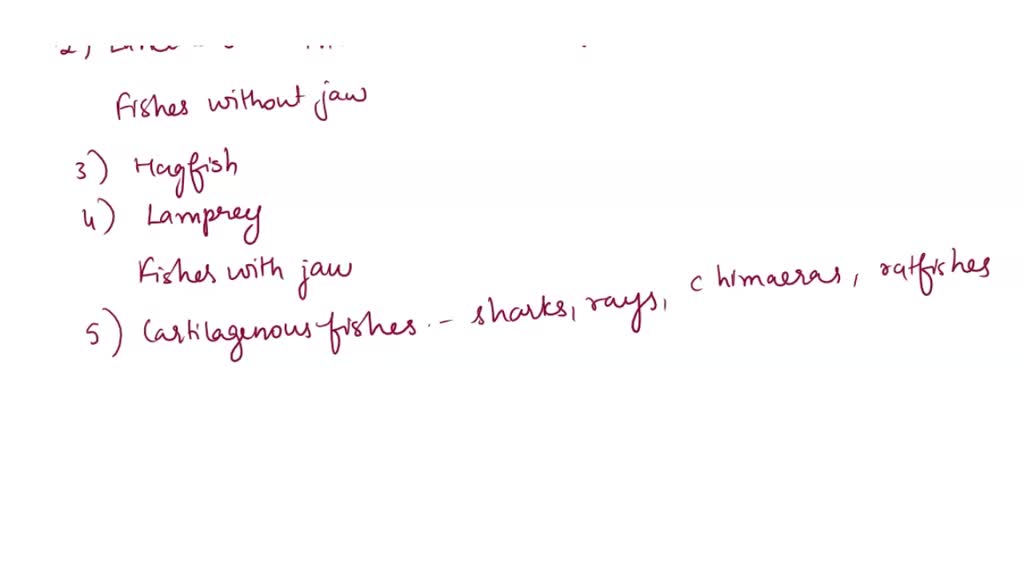 2)
Fishes without jaw
3) Hagfish
4) Lamprey
Fishes with jaw
5) Cartilagenous fishes :- sharks, rays, chimaeras, ratfishes